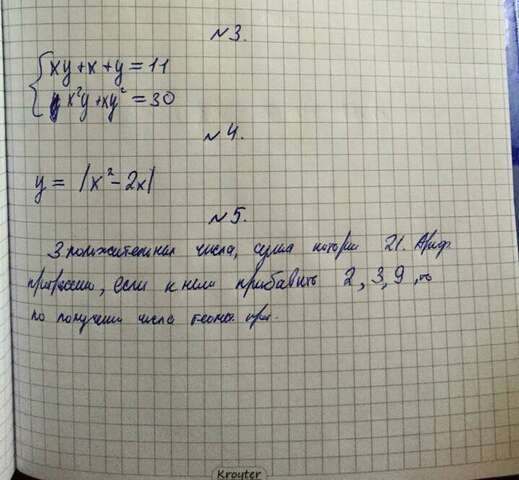 №3.
xy+x+y=11
x²y+xy²=30
№4.
y = |x²-2x|
№5.
3 положительных числа, сумма которых 21. Ариф.
прогрессию, если к ним прибавить 2, 3, 9, то
по получим числа геом. прог.
Kroyter